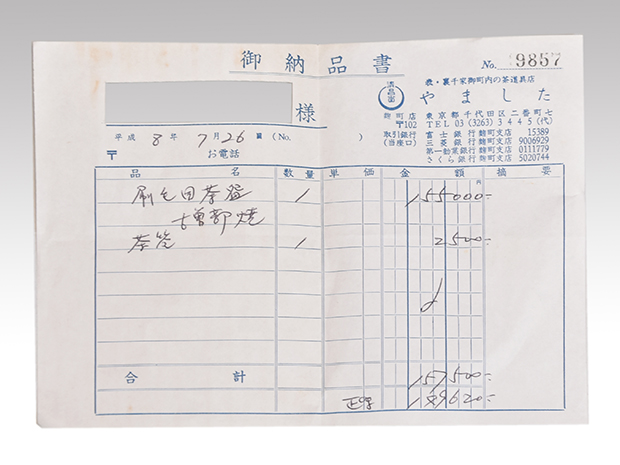 御納品書
No. 9857
表・裏千家御町内の茶道具店
清昌堂 やました
様
麹町店 東京都千代田区二番町七
〒102 TEL 03(3263)3445(代)
取引銀行 富士銀行麹町支店 15389
(当座口) 三菱銀行麹町支店 9006929
第一勧業銀行麹町支店 0111779
さくら銀行麹町支店 5020744
平成 8年 7月26日 (No. )
〒 お電話
品名 数量 単価 金額 摘要
円
刷毛目茶盌 1 155000-
古曽部焼
茶筅 1 2500-
合計 157500-
149620-